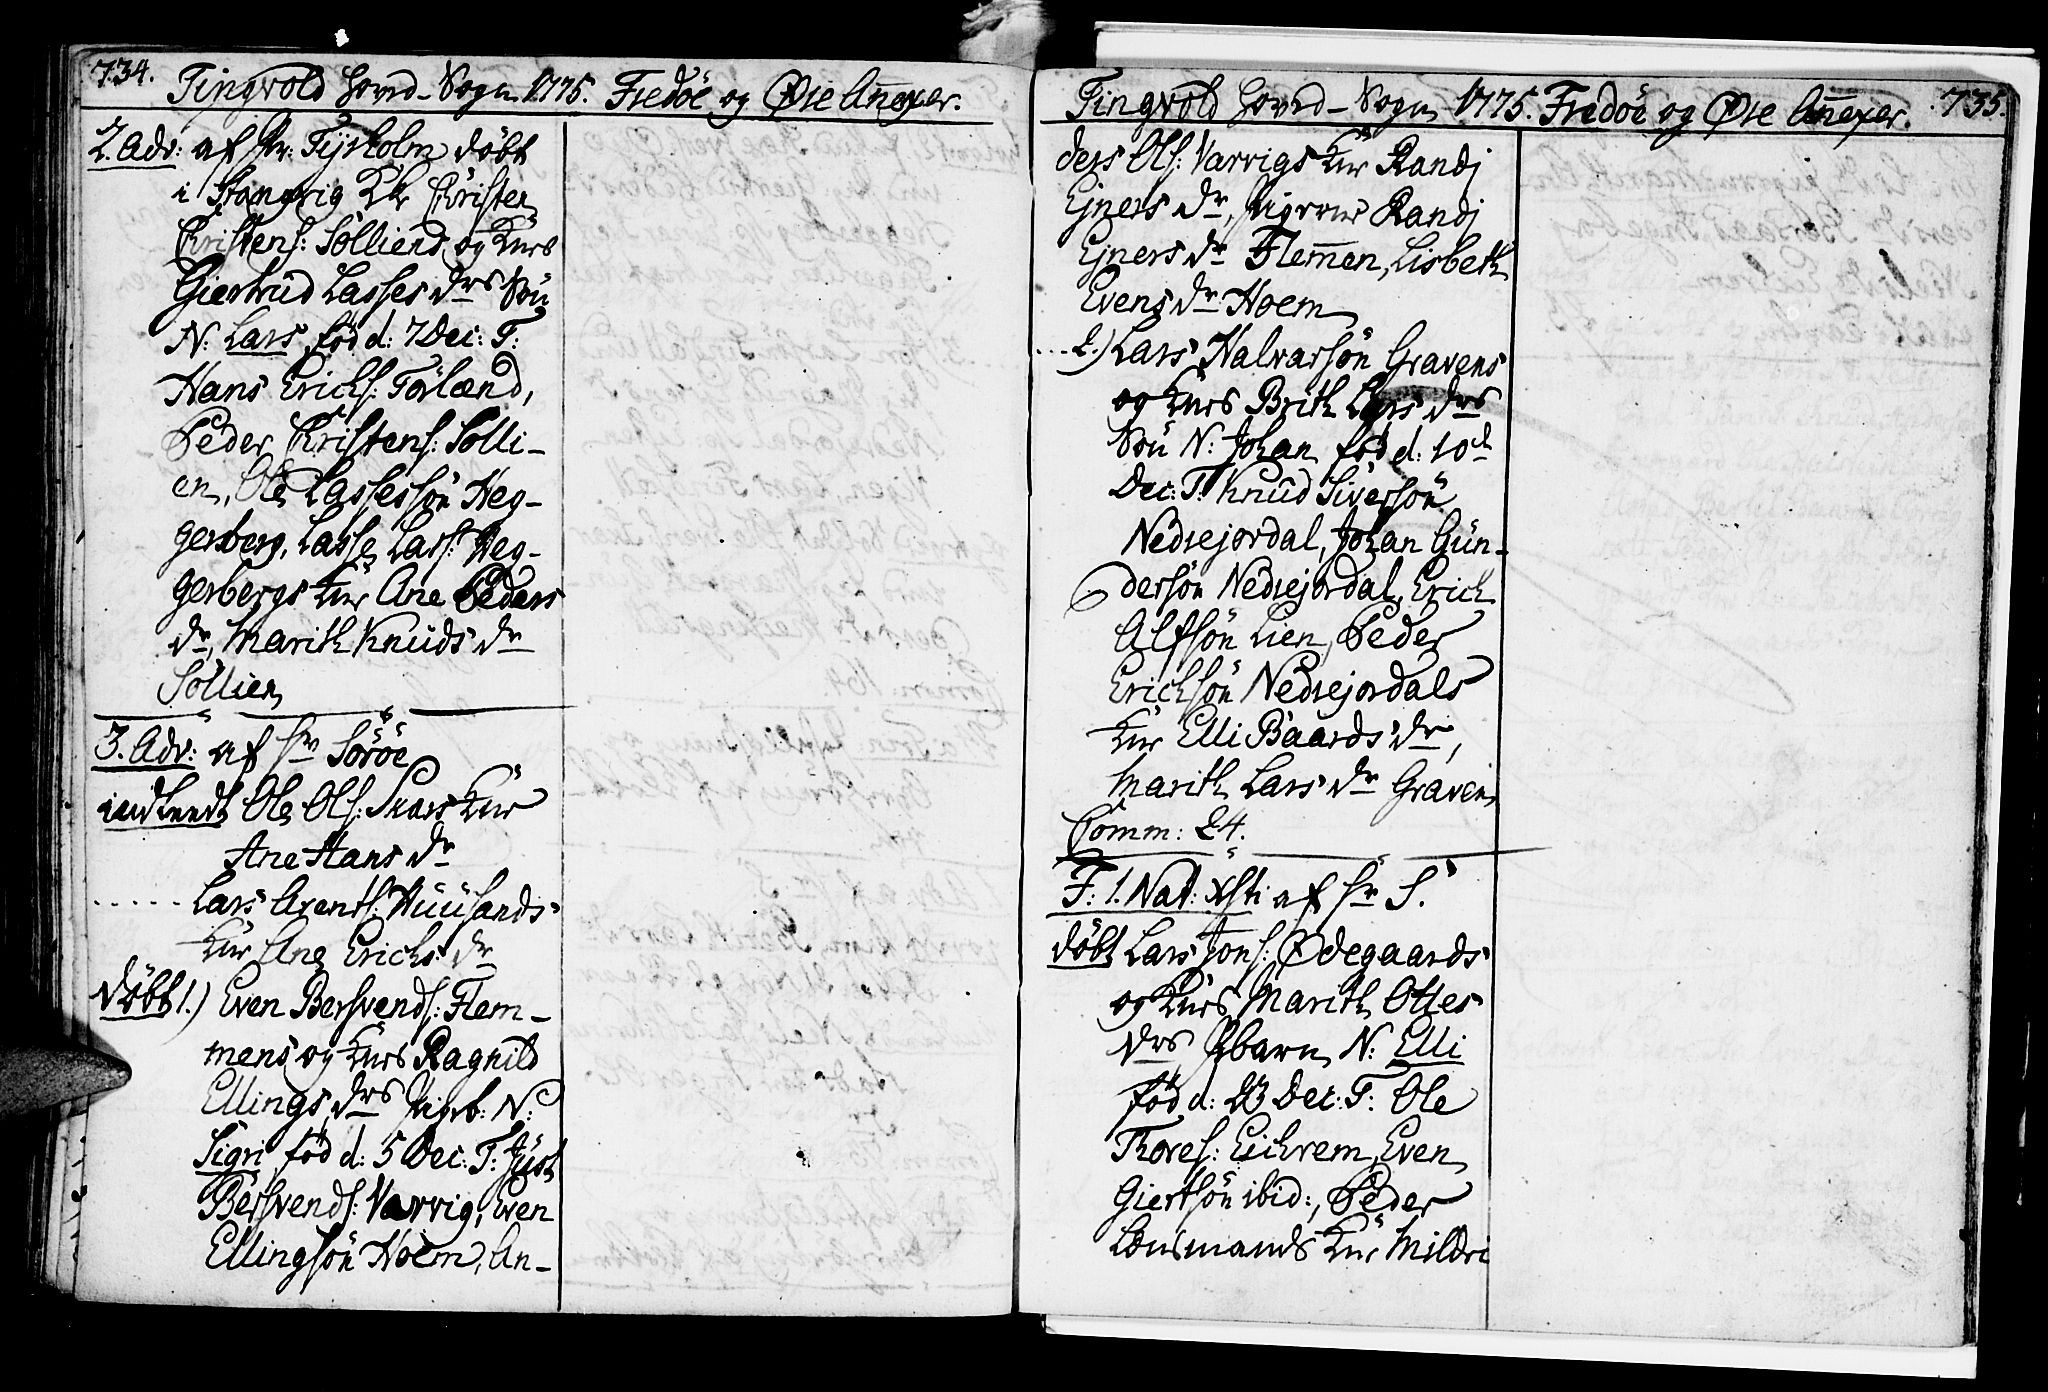 734. Tingvold Hovd-Sogn 1775. Fredöe og Øre Anexer.
2. Adv: af Hr: Tyrholm döbt
i Stangvig Kk Christen
Christens: Sølliens og Kürs
Giertrud Lasses drs Sön
N: Lars föd d: 7 Dec: F:
Hans Erichs: Törlænd,
Peder Christens: Solli-
en, Ole Lassessön Heg-
gerberg, Lasse Lars: Heg-
gerbergs Kür Ane Peders
dr, Marith Knüds dr
Söllien
3. Adv: af Hr Söröe
indleedt Ole Ols: Skars Kür
Ane Hans dr
..... Lars Arents: Hüüsands
Kür Ane Erichs dr
döbt 1.) Even Bersvends: Flem-
mens og Kürs Ragnild
Ellings drs Pigeb: N:
Sigri föd d: 5 Dec: F: Just
Bersvends: Varvig, Even
Ellingsön Hoem, An-
Tingvold Hovd-Sogn 1775. Fredöe og Øre Anexer. 735.
ders Ols: Varvigs Kür Randi
Ejners dr, Pigerne Randi
Ejners dr Flemen, Lisbeth
Evens dr Hoem
... 2.) Lars Halvarsön Gravens
og Kürs Brith Lars drs
Sön N: Johan föd d: 10d
Dec: F: Knüd Siversön
Nedrejordal, Johan Gün-
dersön Nedrejordal, Erich
Alfsön Lien, Peder
Erichsön Nedrejordals
Kür Elli Baards dr,
Marith Lars dr Graven
Comm: 24.
F: 1. Nat: Xsti af Hr S.
döbt Lars Jons: Ødegaards
og Kürs Marith Ottes
drs Pbarn N: Elli
föd d: 23 Dec: F: Ole
Thores: Eichrem, Even
Giertsön ibid:, Peder
Lensmands Kür Mildri